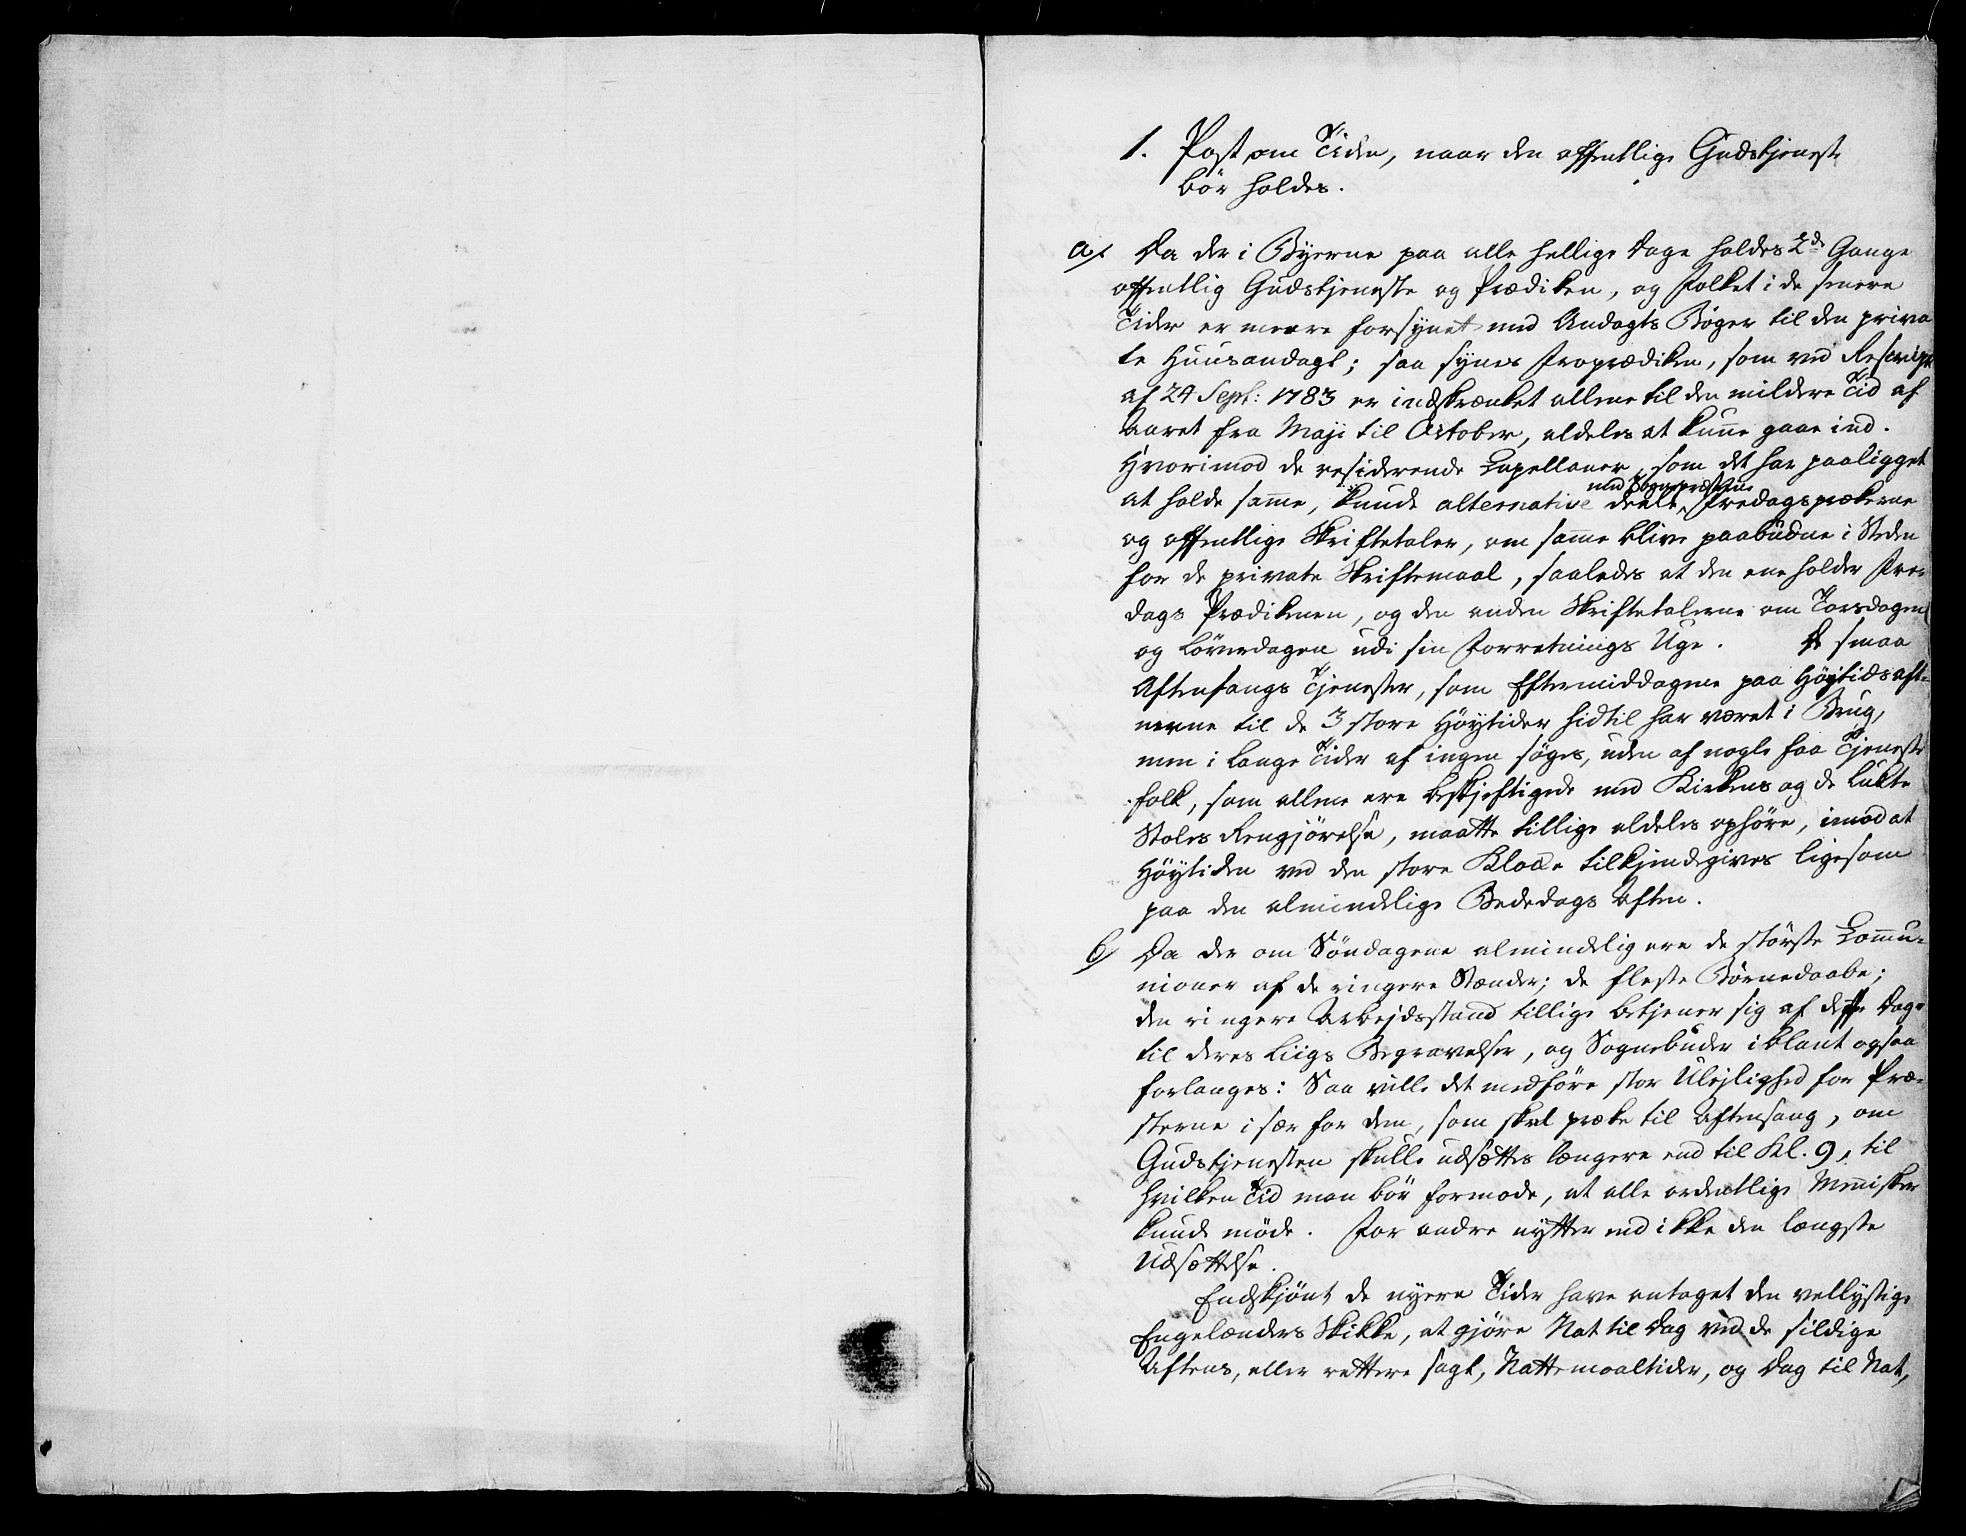 1. Post, om Tiden, naar den offentlige Gudstjeneste
bør holdes.
a/. Da der i Byerne paa alle hellige Dage holdes 2de Gange
offentlig Gudstjeneste og Prædiken, og Folket i de senere
Tider er meere forsynet med Andagts Bøger til den priva
te Huusandagt; saa synes Froprædiken, som ved Rescript
af 24 Sept: 1783 er indskrænket allene til den mildere Tid af
Aaret fra Maji til October, aldeles at kunne gaae ind.
Hvorimod de residerende Capellaner, som det har paaligget
at holde samme, kunde alternative deele med Sognepræsterne Fredagsprækerne
og offentlige Skriftetaler, om samme blive paabudne i Steden
for de private Skriftemaal, saaledes at den ene holder Fre-
dags Prædikenen, og den anden Skriftetalerne om Torsdagen
og Løverdagen udi sin Forretnings Uge. De smaa
Aftensangs Tjenester, som Eftermiddagene paa Høytidsaft-
nerne til de 3 store Høytider hidtil har været i Brug,
men i lange Tider af ingen søges, uden af nogle faa Tjeneste
folk, som allene ere beskjeftigede med Kirkens og de lukte
Stoles Rengjørelse, maatte tillige aldeles ophøre, imod at
Høytiden ved den store Klocke tilkjendegives ligesom
paa den almindelige Bededags Aften.
b/ Da der om Søndagene almindelig ere de største Commu-
nioner af de ringere Stænder; de fleste Børnedaabe;
den ringere Arbejdsstand tillige betjener sig af disse Dage
til deres Liigs Begravelser, og Sognebuder iblant ogsaa
forlanges: Saa ville det medføre stor Ulejlighed for Præ-
sterne især for dem, som skal præke til Aftensang, om
Gudstjenesten skulle udsættes længere end til Kl. 9, til
hvilken Tid man bør formode, at alle ordentlige Mennisker
kunde møde. For andre nytter end ikke den længste
Udsættelse.
Endskjønt de nyere Tider have antaget den vellystige
Engelænders Skikke, at gjøre Nat til Dag ved de sildige
Aftens, eller rettere sagt, Nattemaaltider, og Dag til Nat,